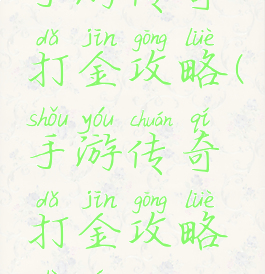 手游传奇
dǎ jīn gōng lüè
打金攻略(
shǒu yóu chuán qí
手游传奇
dǎ jīn gōng lüè
打金攻略